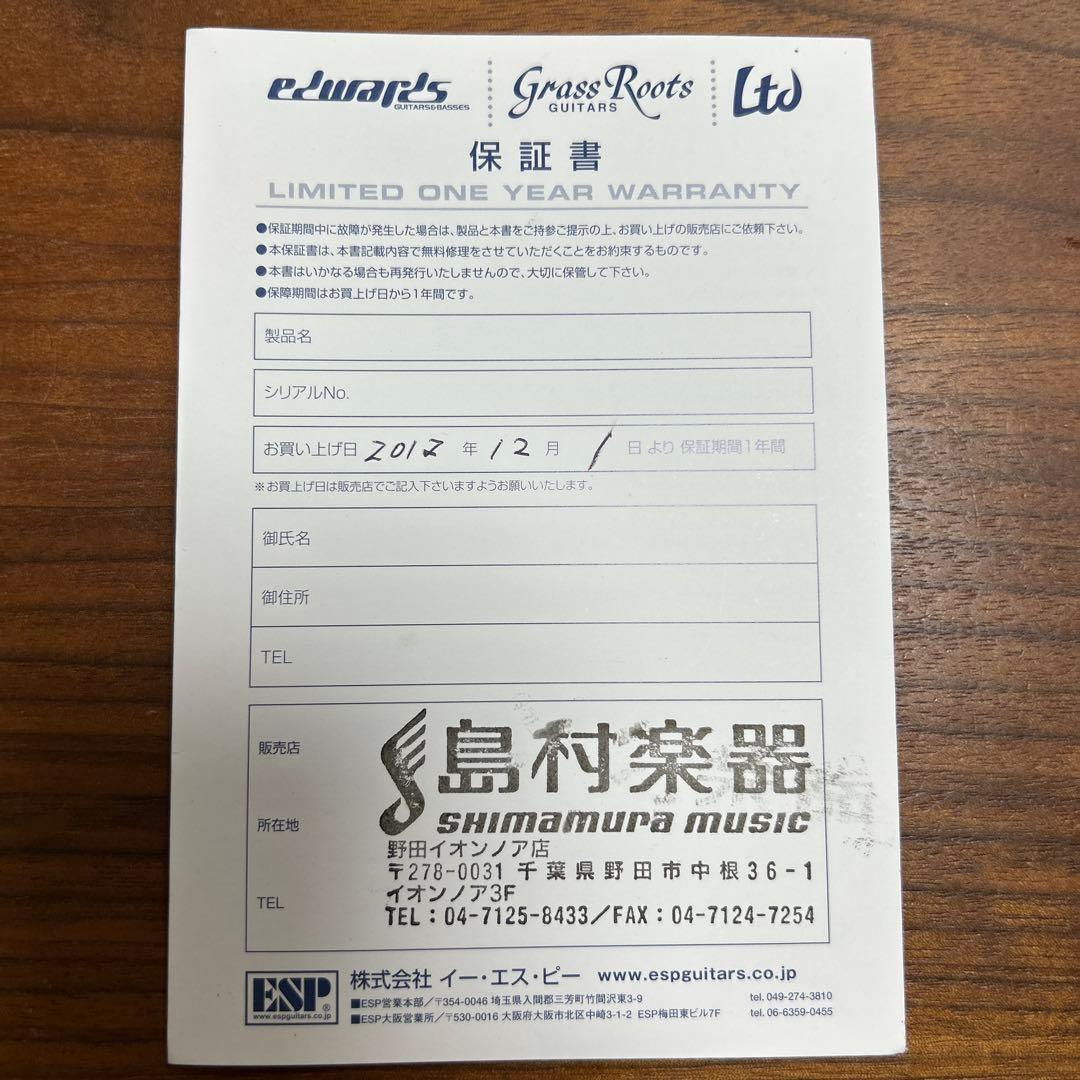 edwards GUITARS&BASSES
Grass Roots GUITARS
Ltd
保証書
LIMITED ONE YEAR WARRANTY
●保証期間中に故障が発生した場合は、製品と本書をご持参ご提示の上、お買い上げの販売店にご依頼下さい。
●本保証書は、本書記載内容で無料修理をさせていただくことをお約束するものです。
●本書はいかなる場合も再発行いたしませんので、大切に保管して下さい。
●保障期間はお買上げ日から1年間です。
製品名
シリアルNo.
お買い上げ日 2012 年 12 月 1 日 より 保証期間1年間
※お買上げ日は販売店でご記入下さいますようお願いいたします。
御氏名
御住所
TEL
販売店
島村楽器
所在地
SHIMAMURA MUSIC
野田イオンノア店
〒278-0031 千葉県野田市中根36-1
イオンノア3F
TEL
TEL：04-7125-8433／FAX：04-7124-7254
ESP®
www.espguitars.co.jp
株式会社 イー・エス・ピー www.espguitars.co.jp
■ESP営業本部／〒354-0046 埼玉県入間郡三芳町竹間沢東3-9 tel. 049-274-3810
■ESP大阪営業所／〒530-0016 大阪府大阪市北区中崎3-1-2 ESP梅田東ビル7F tel. 06-6359-0455